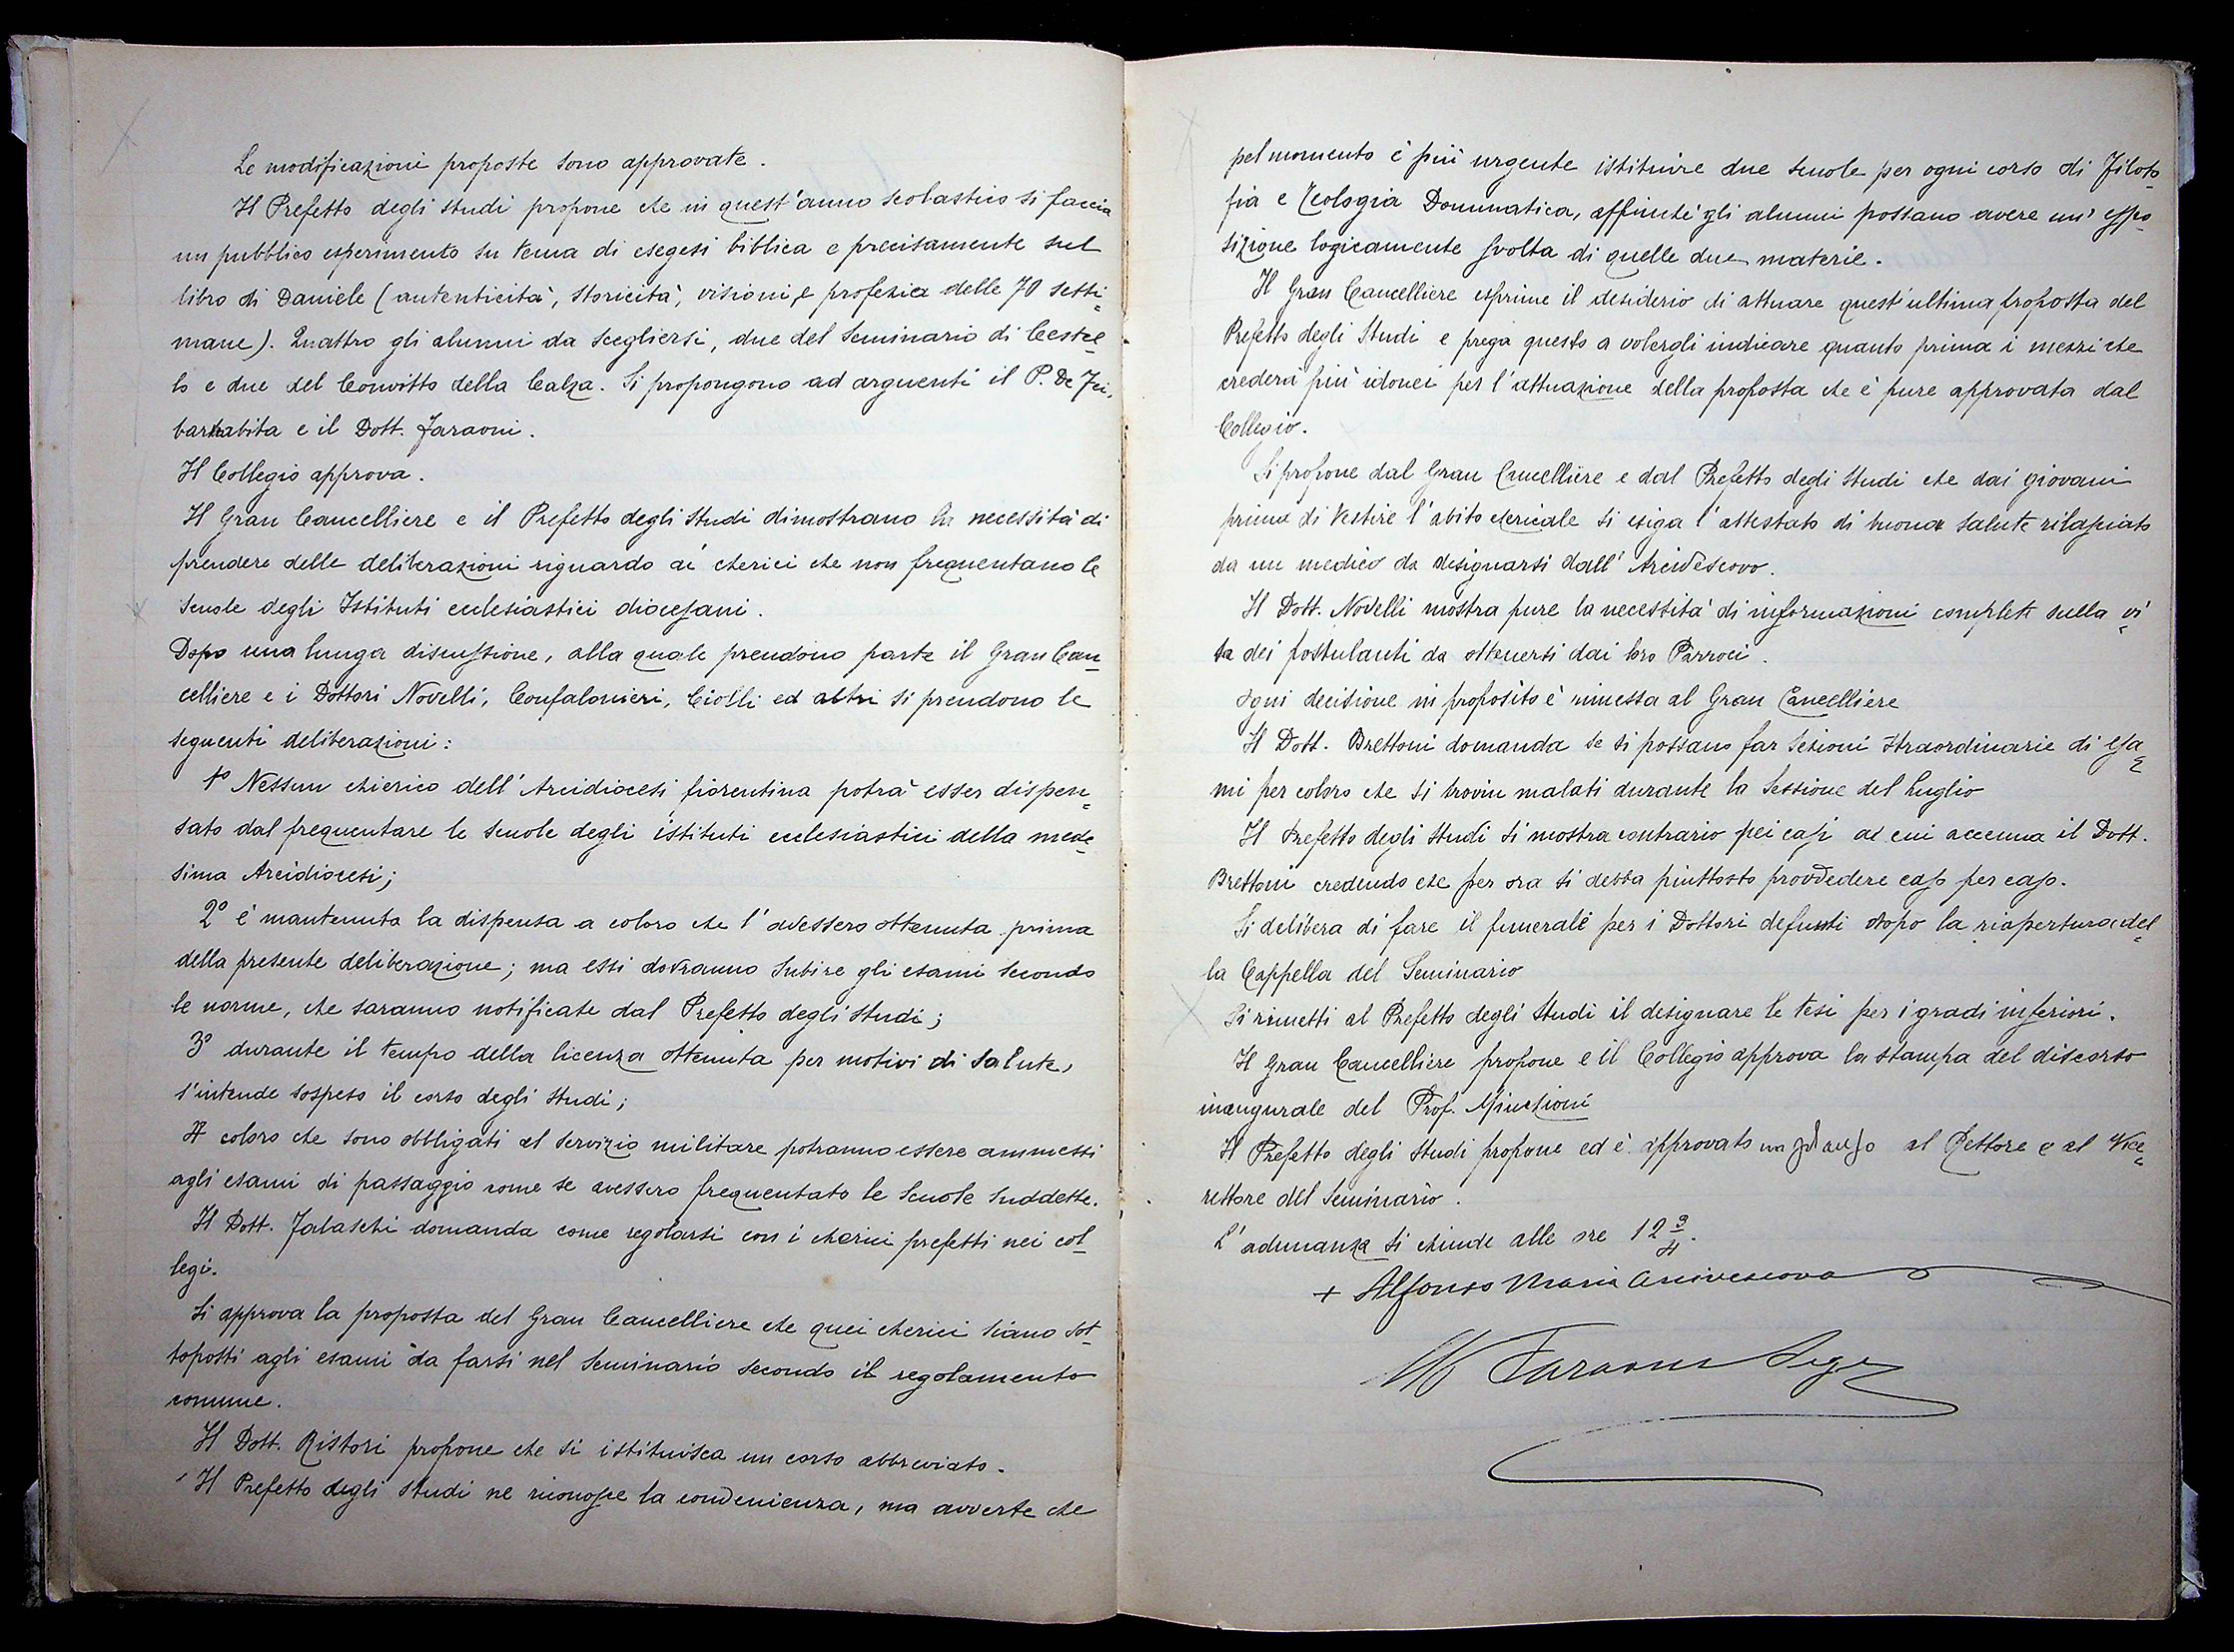 Le modificazioni proposte sono approvate.
Il Prefetto degli studi propone che in quest'anno scolastico si faccia
un pubblico esperimento su tema di esegesi biblica e precisamente sul
libro di Daniele (autenticità, storicità, visioni, e profezia delle 70 setti-
mane). Quattro gli alunni da scegliersi, due del Seminario di Cestel-
lo e due del Convitto della Calza. Si propongono ad arguenti il P. De Fei,
barnabita e il Dott. Faraoni.
Il Collegio approva.
Il Gran Cancelliere e il Prefetto degli Studi dimostrano la necessità di
prendere delle deliberazioni riguardo ai cherici che non frequentano le
scuole degli Istituti ecclesiastici diocesani.
Dopo una lunga discussione, alla quale prendono parte il Gran Can-
celliere e i Dottori Novelli, Confalonieri, Ciolli ed altri si prendono le
seguenti deliberazioni:
1º Nessun chierico dell'Arcidiocesi fiorentina potrà esser dispen-
sato dal frequentare le scuole degli istituti ecclesiastici della mede-
sima Arcidiocesi;
2º è mantenuta la dispensa a coloro che l'avessero ottenuta prima
della presente deliberazione; ma essi dovranno subire gli esami secondo
le norme, che saranno notificate dal Prefetto degli Studi;
3º durante il tempo della licenza ottenuta per motivi di salute,
s'intende sospeso il corso degli studi;
4º coloro che sono obbligati al servizio militare potranno essere ammessi
agli esami di passaggio come se avessero frequentato le Scuole suddette.
Il Dott. Falaschi domanda come regolarsi con i cherici prefetti nei col-
legi.
Si approva la proposta del Gran Cancelliere che quei cherici siano sot-
toposti agli esami da farsi nel Seminario secondo il regolamento
comune.
Il Dott. Ristori propone che si istituisca un corso abbreviato.
Il Prefetto degli Studi ne riconosce la convenienza, ma avverte che
pel momento è più urgente istituire due scuole per ogni corso di Filoso-
fia e Teologia Dommatica, affinché gli alunni possano avere un'espo-
sizione logicamente svolta di quelle due materie.
Il Gran Cancelliere esprime il desiderio di attuare quest'ultima proposta del
Prefetto degli Studi e prega questo a volergli indicare quanto prima i mezzi che
crederà più idonei per l'attuazione della proposta che è pure approvata dal
Collegio.
Si propone dal Gran Cancelliere e dal Prefetto degli Studi che dai giovani
prima di vestire l'abito chericale si esiga l'attestato di buona salute rilasciato
da un medico da designarsi dall'Arcivescovo.
Il Dott. Novelli mostra pure la necessità di informazioni complete sulla vi-
ta dei postulanti da ottenersi dai loro Parroci.
Ogni decisione in proposito è rimessa al Gran Cancelliere
Il Dott. Brettoni domanda se si possano far sezioni straordinarie di esa-
mi per coloro che si trovin malati durante la Sessione del Luglio
Il Prefetto degli Studi si mostra contrario pei casi ad cui accenna il Dott.
Brettoni credendo che per ora si debba piuttosto provvedere caso per caso.
Si delibera di fare il funerale per i Dottori defunti dopo la riapertura del-
la Cappella del Seminario
Si rimetti al Prefetto degli Studi il designare le tesi per i gradi inferiori.
Il Gran Cancelliere propone e il Collegio approva la stampa del discorso
inaugurale del Prof.
Il Prefetto degli Studi propone ed è approvato un plauso al Rettore e al Vice-
rettore del Seminario.
L'adunanza si chiude alle ore 12 3/4.
+ Alfonso Maria Arcivescovo
Faraoni Segr